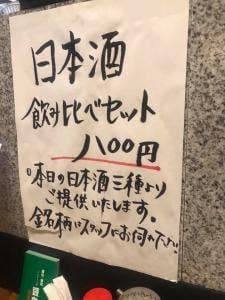 日本酒
飲み比べセット
八00円
○本日の日本酒三種より
ご提供いたします。
銘柄はスタッフにお伺い下さい